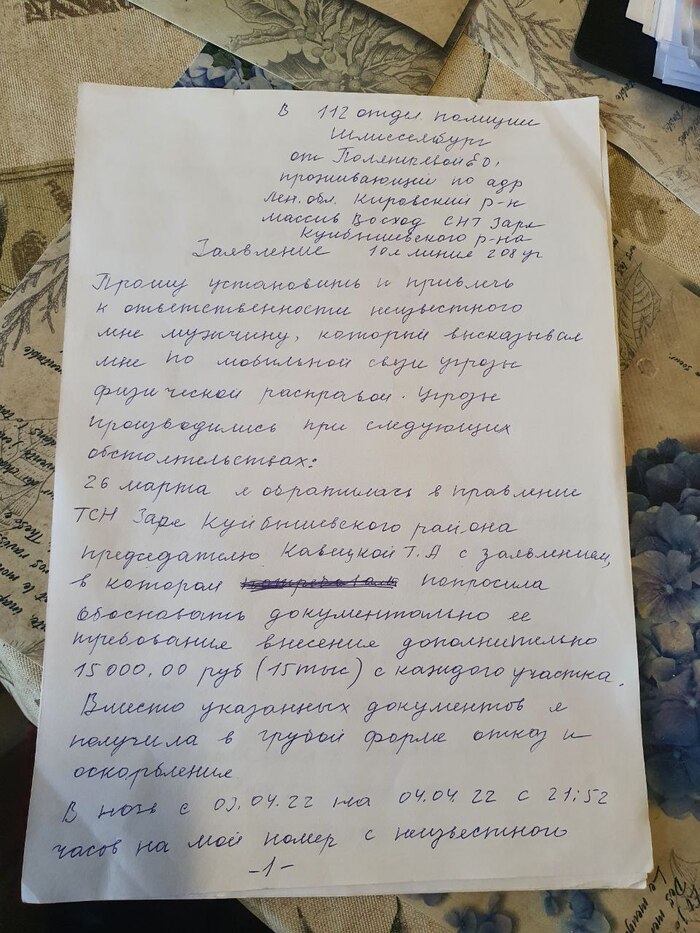 В 112 отдел. полиции
Шлиссельбург
от
проживающий по адр
Лен. обл. Кировский р-н
массив Восход СНТ Заря
Куйбышевского р-на
Заявление 10я линия 208 уч
Прошу установить и привлечь
к ответственности неизвестного
мне мужчину, который высказывал
мне по мобильной связи угрозы
физической расправой. Угрозы
производились при следующих
обстоятельствах:
26 марта я обратилась в правление
ТСН Заря Куйбышевского района
председателю Кавецкой Т.А с заявлением,
в котором попросила
обосновать документально ее
требование внесения дополнительно
15 000,00 руб (15 тыс) с каждого участка.
Вместо указанных документов я
получила в грубой форме отказ и
оскорбление
В ночь с 03.04.22 на 04.04.22 с 21:52
часов на мой номер с неизвестного
-1-